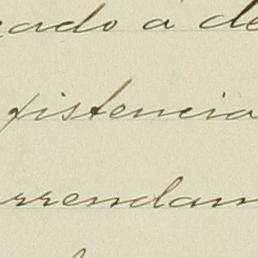 cado a de
xistencia
rrendam